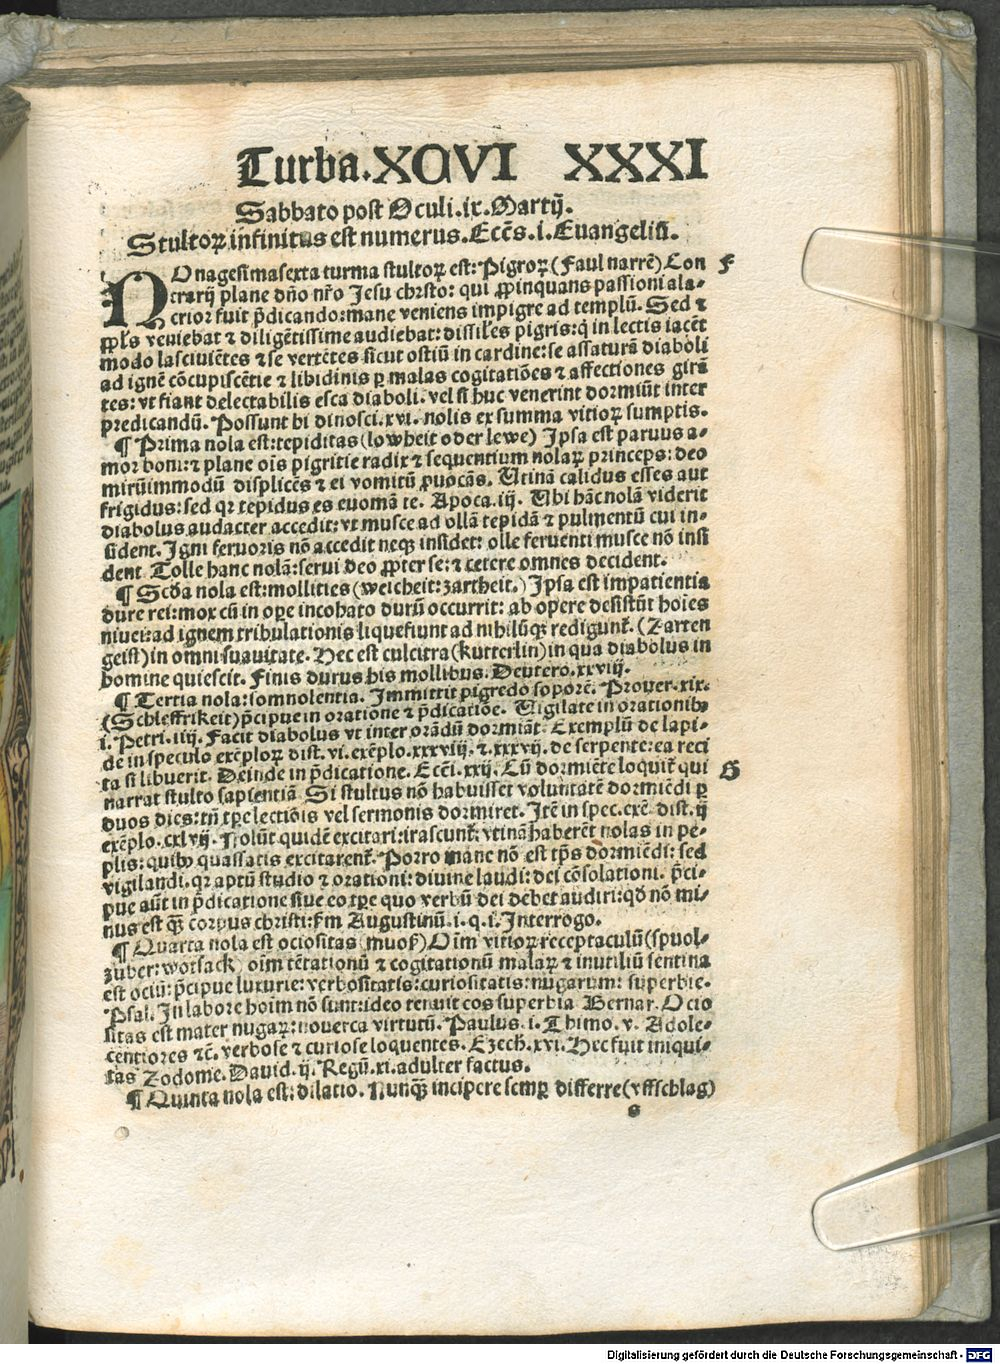 Turba.XCVI XXXI
Sabbato post Oculi.ix.Martij.
Stultoꝝ infinitus est numerus.Eccēs.i.Euangeliū.
NOnagesimasexta turma stultoꝝ est: Pigroꝝ (Faul narrē) Con F
trarij plane dn̄o nr̄o Jesu chrsto: qui ꝓpinquans passioni ala-
crior fuit p̄dicando: mane veniens impigre ad templū. Sed ⁊
ꝓpl's veniebat ⁊ diligētissime audiebat: dissil'es pigris: q̄ in lectis iacēt
modo lasciuiētes ⁊ se vertētes sicut ostiū in cardine: se assaturā diaboli
ad ignē cōcupiscētie ⁊ libidinis ꝑ malas cogitatiōes ⁊ affectiones girā
tes: vt fiant delectabilis esca diaboli. vel si huc venerint dormiūt inter
predicandū. Possunt hi dinosci.xvi. nolis ex summa vitioꝝ sumptis.
¶ Prima nola est: tepiditas (lowheit oder lewe) Ipsa est paruus a-
mor boni: ⁊ plane oīs pigritie radix ⁊ sequentium nolaꝝ princeps: deo
mirūimmodū displicēs ⁊ ei vomitū ꝓuocās. Utinā calidus esses aut
frigidus: sed qꝛ tepidus es euomā te. Apoca.iij. Ubi hāc nolā viderit
diabolus audacter accedit: vt musce ad ollā tepidā ⁊ pulmentū cui in-
sident. Igni feruoris nō accedit neqꝫ insidet: olle feruenti musce nō insi
dent Tolle hanc nolā: serui deo ꝓpter se: ⁊ cetere omnes decident.
¶ Scd̄a nola est: mollities (weicheit: zartheit.) Ipsa est impatientia
dure rei: mox cū in oꝑe incohato durū occurrit: ab opere desistūt hoīes
niuei: ad ignem tribulationis liquefiunt ad nihilūqꝫ redigunt̄. (Zarten
geist) in omni suauitate. Hec est culcitra (kutterlin) in qua diabolus in
homine quiescit. Finis durus his mollibus. Deutero.xxviij.
¶ Tertia nola: somnolentia. Immittit pigredo soporē. Prouer.xix.
(Schleffrikeit) p̄cipue in oratione ⁊ p̄dicatiōe. Uigilate in orationibꝰ
i. Petri.iiij. Facit diabolus vt inter orādū dormiāt Exemplū de lapi-
de in speculo exēploꝝ dist.vi.exēplo.xxxviij.⁊.xxxvij.de serpente: ea reci
ta si libuerit. Deinde in p̄dicatione. Eccī.xxij. Cū dormiēte loquit̄ qui G
narrat stulto sapientiā Si stultus nō habuisset voluntatē dormiēdi ꝑ
duos dies: tn̄ tꝑe lectiōis vel sermonis dormiret. Itē in spec.exē dist.ij
exēplo.cxlvij. Nolūt quidē excitari: irascunt̄: vtinā haberēt nolas in pe-
plis: quibꝰ quassatis excitarent̄. Porro mane nō est tp̄s dormiēdi: sed
vigilandi. qꝛ aptū studio ⁊ orationi: diuine laudi: dei cōsolationi. p̄ci-
pue aūt in p̄dicatione siue eo tꝑe quo verbū dei debet audiri: qd̄ nō mi-
nus est qꝫ corpus christi: fm Augustinū.i.q.i.Interrogo.
¶ Quarta nola est ociositas (muoß) Oīm vitioꝝ receptaculū (spuol-
zuber: wotsack) oīm tētationū ⁊ cogitationū malaꝝ ⁊ inutiliū sentina
est ociū: p̄cipue luxurie: verbositatis: curiositatis: nugarum: superbie.
Psal. In labore hoīm nō sunt: ideo tenuit eos superbia Bernar. Ocio
sitas est mater nugaꝝ: nouerca virtutū. Paulus.i.Thimo.v. Adole-
centiores ⁊c̄. verbose ⁊ curiose loquentes. Ezech.xvi. Hec fuit iniqui-
tas Zodome. Dauid.ij.Regū.xi.adulter factus.
¶ Quinta nola est: dilatio. Nunqꝫ incipere semꝑ differre (vffschlag)
e
Digitalisierung gefördert durch die Deutsche Forschungsgemeinschaft - DFG